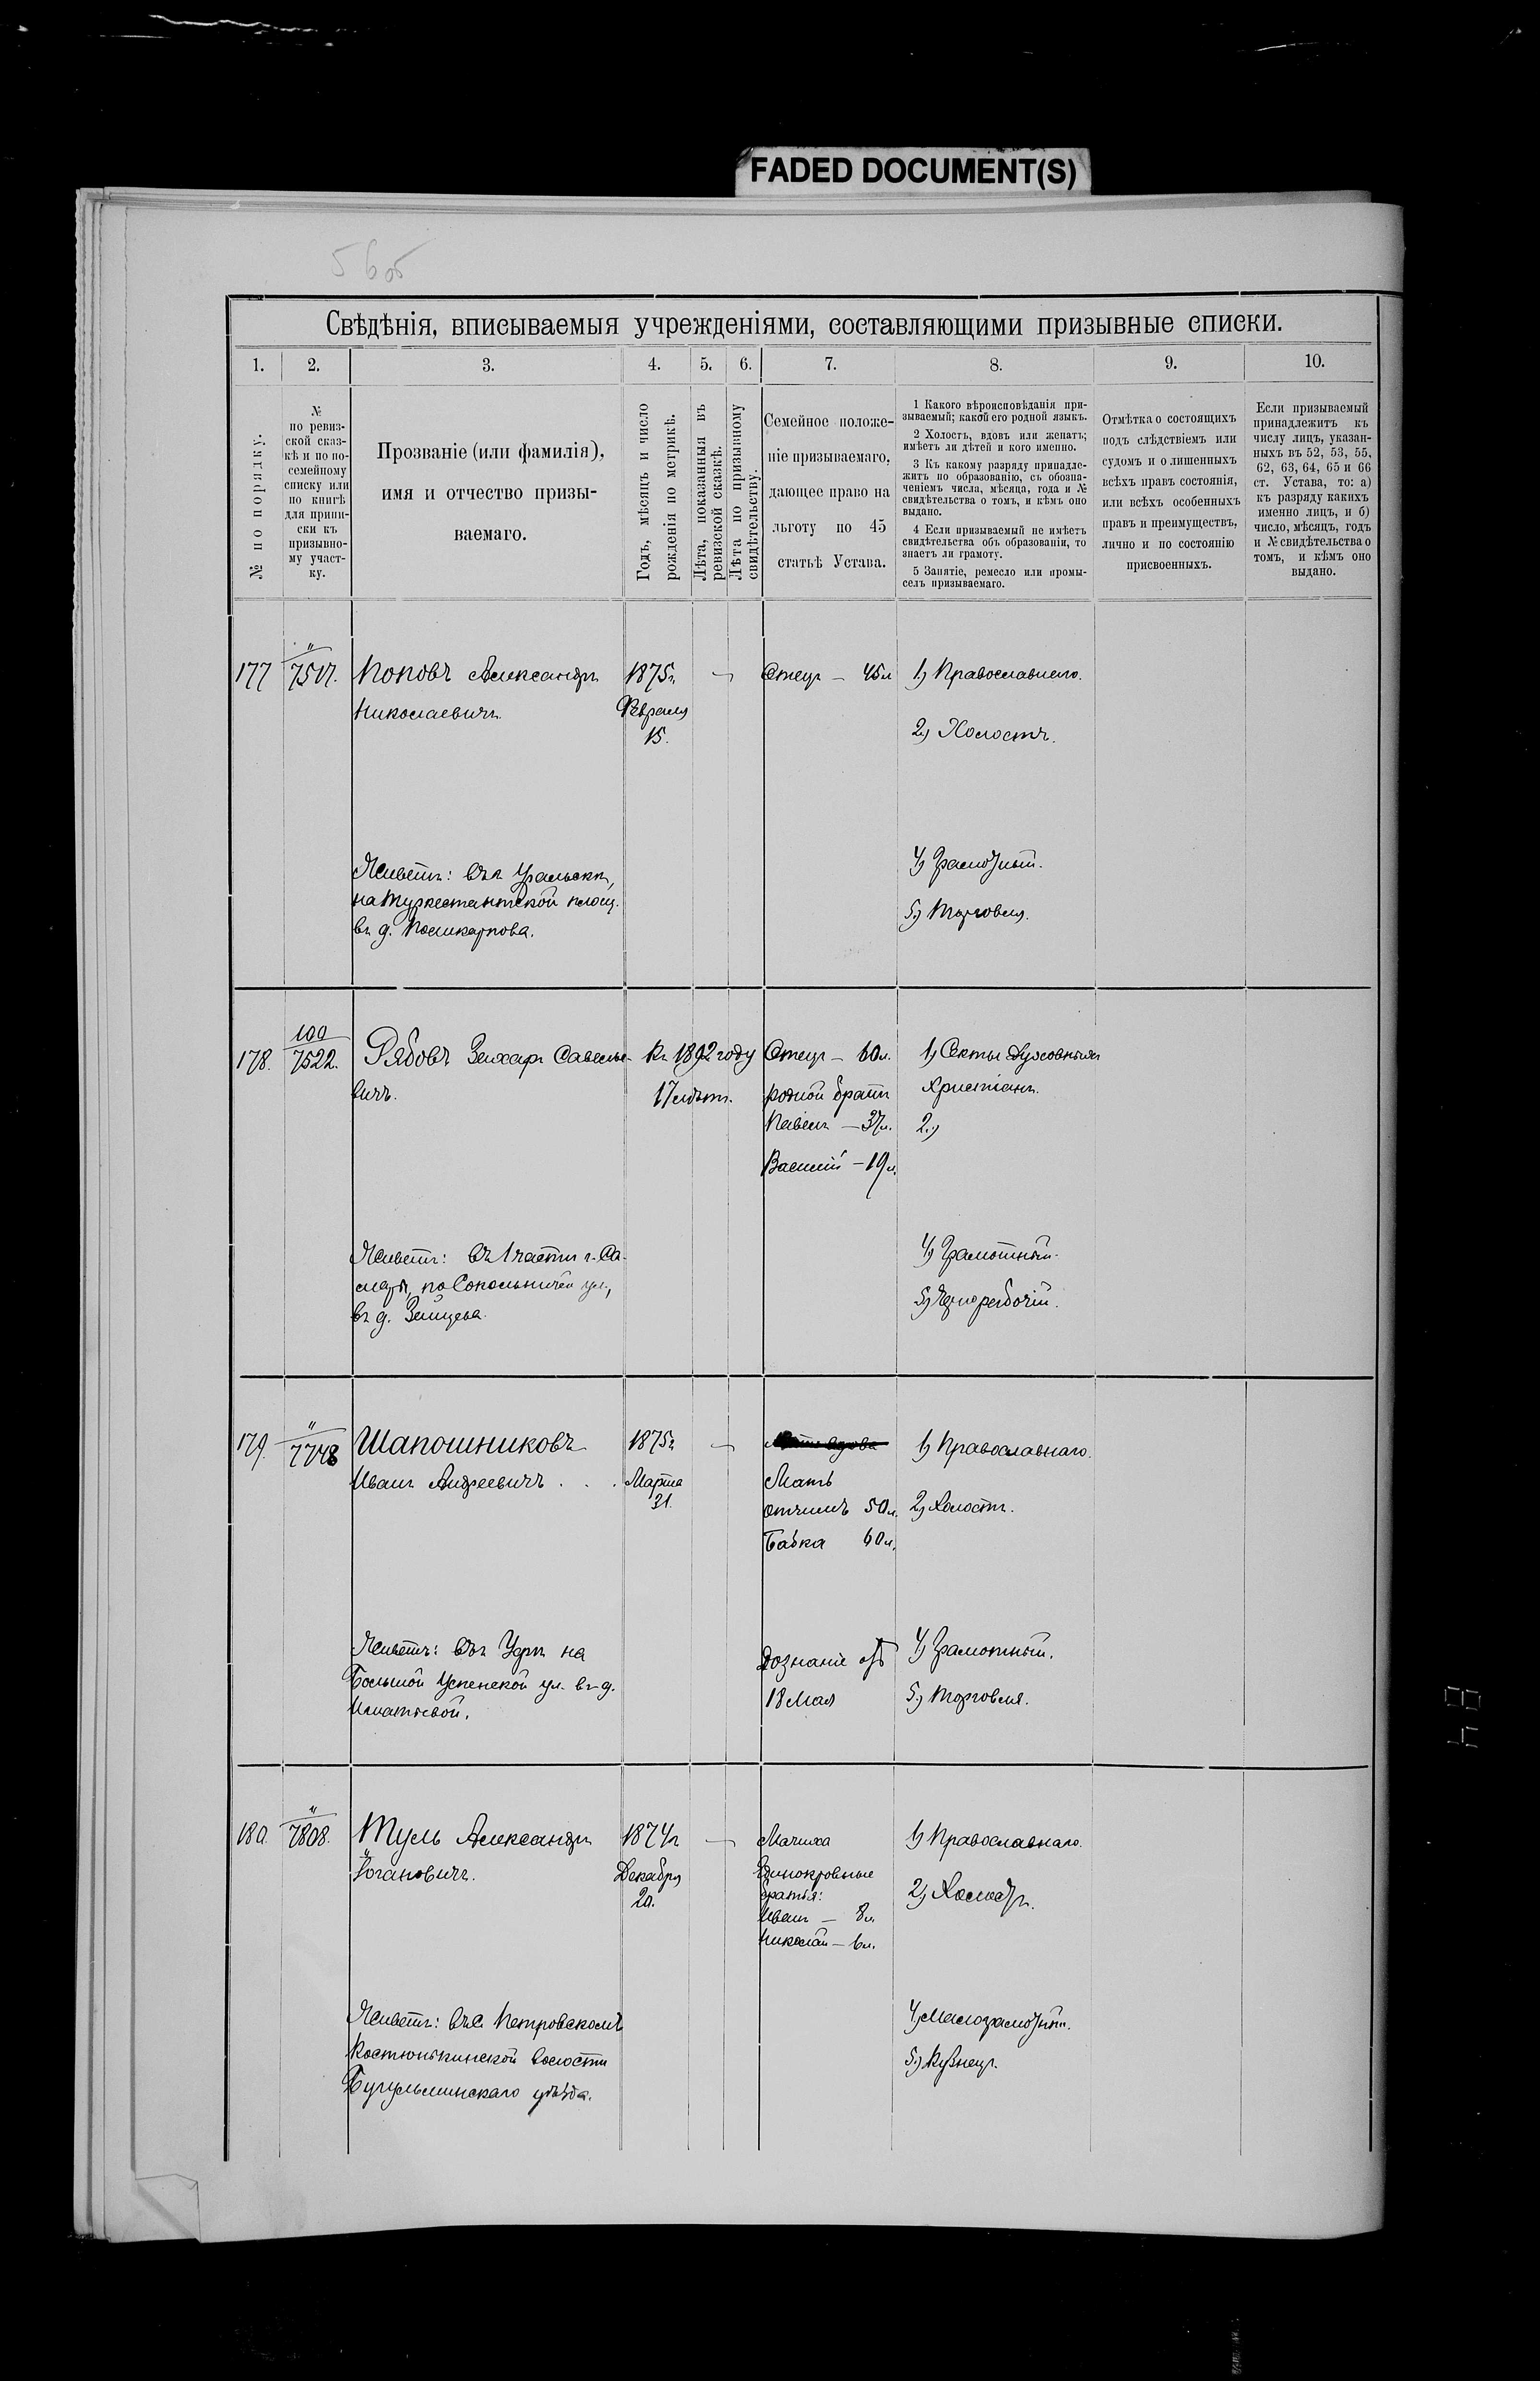 FADED DOCUMENT(S)
56об
Свѣдѣнія, вписываемыя учрежденіями, составляющими призывные списки.
1. 2. 3. 4. 5. 6. 7. 8. 9. 10.
№ по порядку.
№
по ревиз-
ской сказ-
кѣ и по по-
семейному
списку или
по книгѣ
для припи-
ски къ
призывно-
му участ-
ку.
Прозваніе (или фамилія),
имя и отчество призы-
ваемаго.
Годъ, мѣсяцъ и число
рожденія по метрикѣ.
Лѣта, показанныя въ
ревизской сказкѣ.
Лѣта по призывному
свидѣтельству.
Семейное положе-
ніе призываемаго,
дающее право на
льготу по 45
статьѣ Устава.
1 Какого вѣроисповѣданія при-
зываемый; какой его родной языкъ.
2 Холостъ, вдовъ или женатъ;
имѣетъ ли дѣтей и кого именно.
3 Къ какому разряду принадле-
житъ по образованію, съ обозна-
ченіемъ числа, мѣсяца, года и №
свидѣтельства о томъ, и кѣмъ оно
выдано.
4 Если призываемый не имѣетъ
свидѣтельства объ образованіи, то
знаетъ ли грамоту.
5 Занятіе, ремесло или промы-
селъ призываемаго.
Отмѣтка о состоящихъ
подъ слѣдствіемъ или
судомъ и о лишенныхъ
всѣхъ правъ состоянія,
или всѣхъ особенныхъ
правъ и преимуществъ,
лично и по состоянію
присвоенныхъ.
Если призываемый
принадлежитъ къ
числу лицъ, указан-
ныхъ въ 52, 53, 55,
62, 63, 64, 65 и 66
ст. Устава, то: а)
къ разряду какихъ
именно лицъ, и б)
число, мѣсяцъ, годъ
и № свидѣтельства о
томъ, и кѣмъ оно
выдано.
177
"
7517.
Поповъ Александръ
Николаевичъ.
1875г.
Февраля
15.
—
Отецъ — 45л
1) Православнаго.
2) Холостъ.
Живетъ: въ г. Уральскѣ,
на Туркестантской площ.
въ д. Поликарпова.
4) Грамотный.
5) Торговля.
178.
100
7522.
Рябовъ Захаръ Савелье-
вичъ.
Къ 1892 году
17 лѣтъ.
Отецъ — 60л.
родной братъ
Павелъ — 37л.
Василій — 19л.
1) Секты Духовныхъ
Христіанъ.
2.)
Живетъ: въ 1 части г. Са-
мары, по Сокольничей ул.,
въ д. Зайцева.
4) Грамотный.
5) Чернорабочій.
179.
"
7748
Шапошниковъ
Иванъ Андреевичъ . . .
1875г.
Марта
31.
—
Мать
отчимъ 50л.
Бабка 60л.
1) Православнаго.
2) Холостъ.
Живетъ: въ г. Уфѣ на
Большой Успенской ул. въ д.
Игнатьевой.
Дознаніе отъ
18 Мая
4) Грамотный.
5) Торговля.
180.
"
7808.
Туль Александръ
Іогановичъ.
1874г.
Декабря
20.
—
Мачиха
Единокровные
братья:
Иванъ — 8л.
Николай — 6л.
1) Православнаго.
2) Холостъ.
Живетъ: въ с. Петровскомъ
Костюнькинской волости
Бугульминскаго уѣзда.
4) Малограмотный.
5) Кузнецъ.